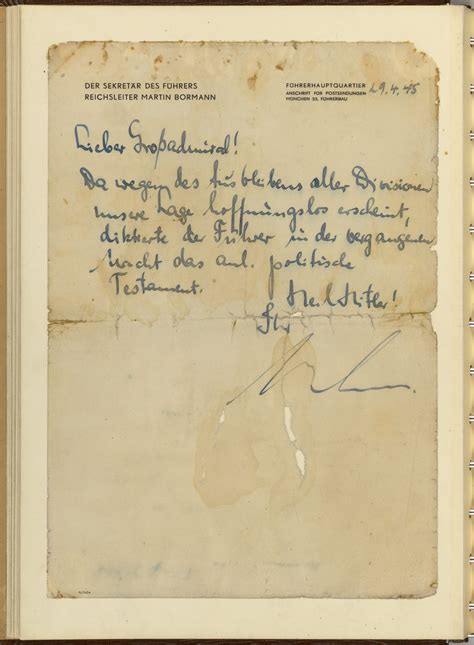 DER SEKRETÄR DES FÜHRERS
REICHSLEITER MARTIN BORMANN
FÜHRERHAUPTQUARTIER
ANSCHRIFT FÜR POSTSENDUNGEN
MÜNCHEN 33, FÜHRERBAU
29.4.45
Lieber Großadmiral!
Da wegen des Ausbleibens aller Divisionen
unsere Lage hoffnungslos erscheint,
diktierte der Führer in der vergangenen
Nacht das anl. politische
Testament.
Heil Hitler!
Ihr